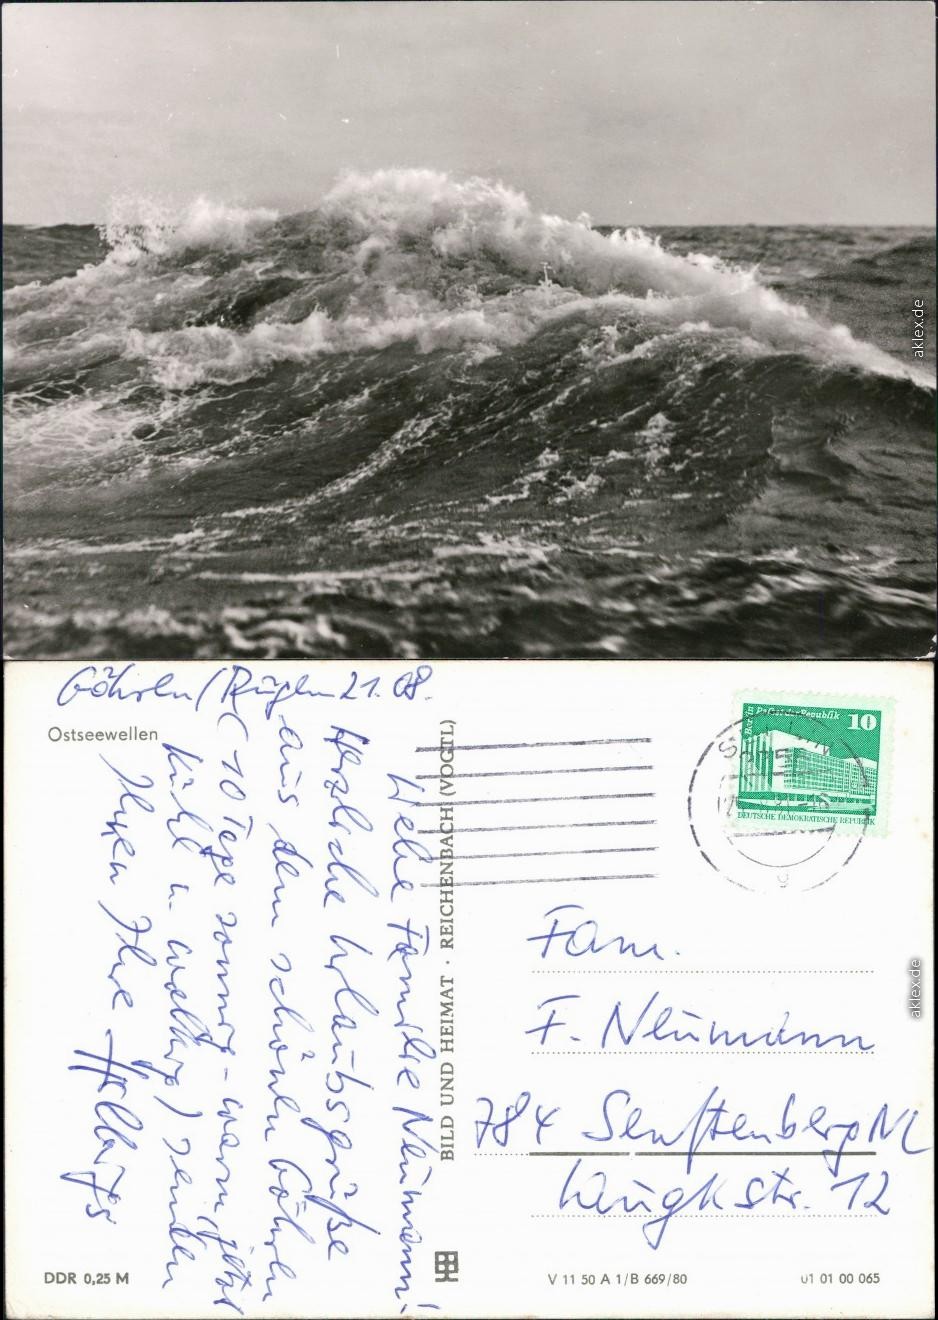 aklex.de
Göhren/Rügen 21. 08.
Ostseewellen
Liebe Familie Neumann!
Herzliche Urlaubsgrüße
aus dem schönen Göhren
(10 Tage sonnig-warm, jetzt
kühl u. wolkig) senden
Ihnen Ihre
BILD UND HEIMAT · REICHENBACH (VOGTL)
Berlin Palast der Republik 10
DEUTSCHE DEMOKRATISCHE REPUBLIK
Fam.
F. Neumann
784 Senftenberg NL
str. 12
aklex.de
DDR 0,25 M
V 11 50 A 1/B 669/80
01 01 00 065